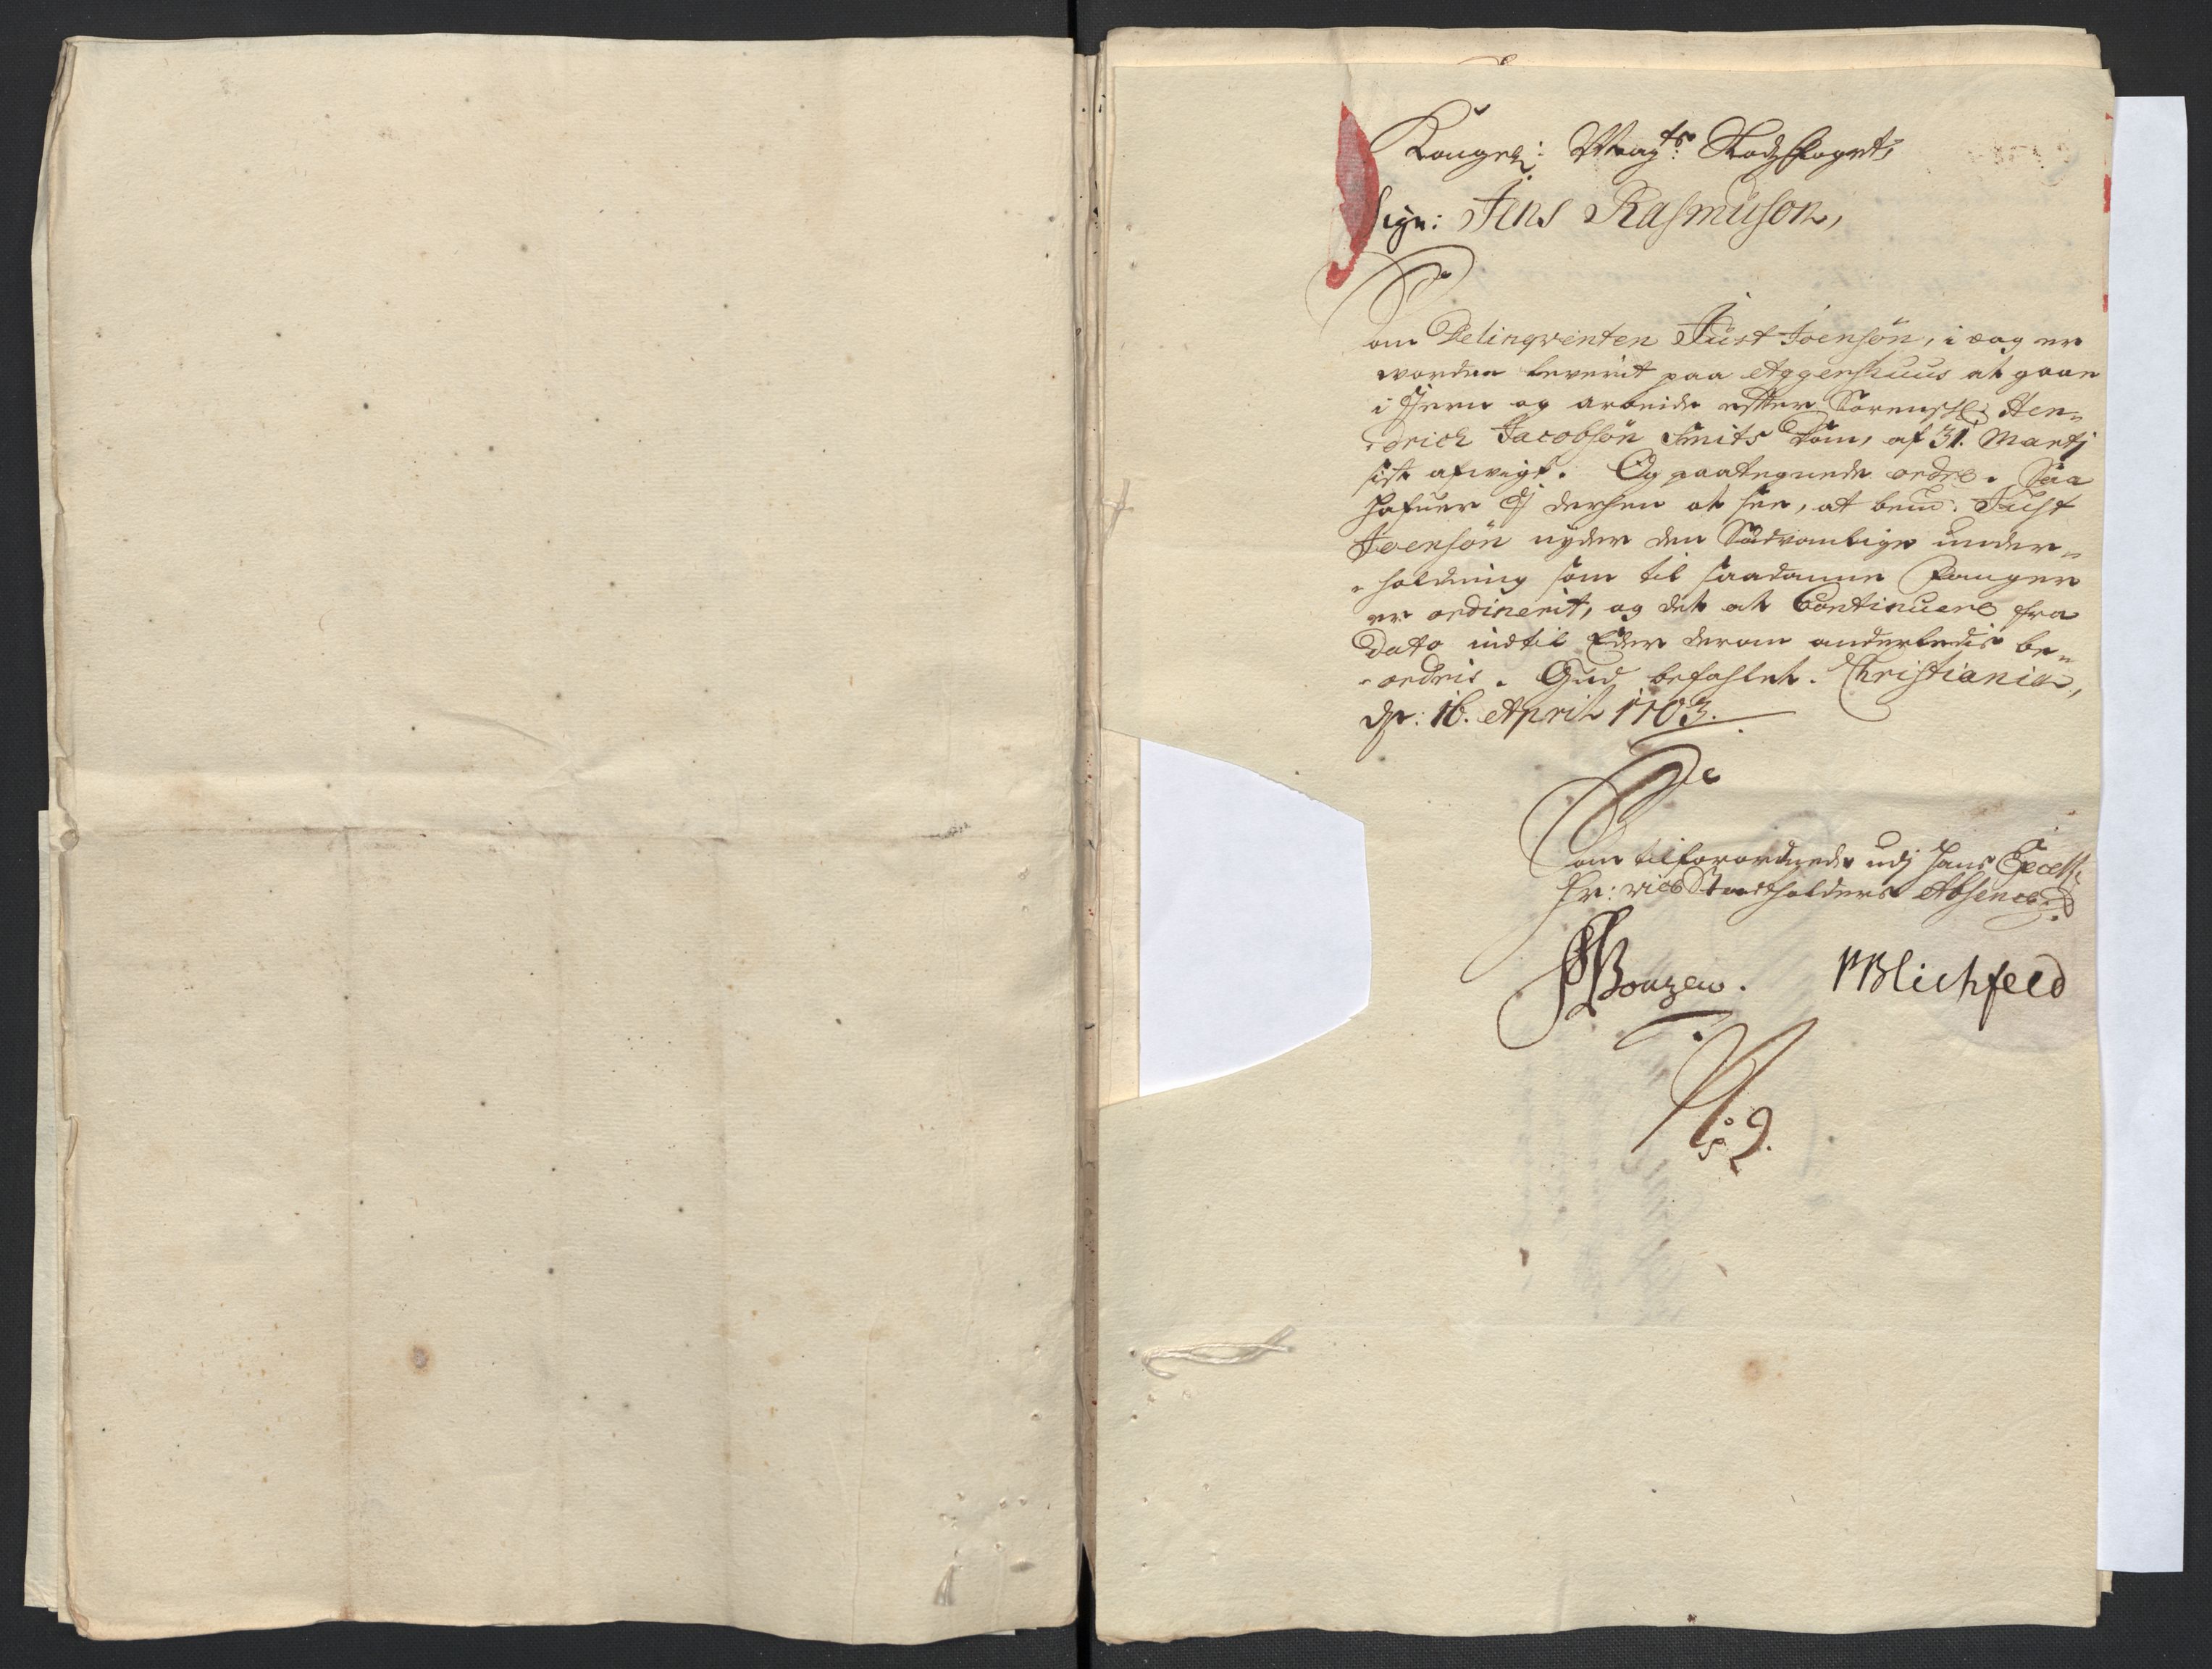 Kongel: Mayts: Slodsfoget,
Sign: Jens Rasmuson,
Som Delinqventen Just Joensön, i dag er
worden leverit paa Aggershuus at gaae
i Jern og arbeide efter Sorenskl: Hen-
-drich Jacobsön Smits Dom, af 31. Martj
sist afvigt. Og paategnede ordre. Saa
hafuer I dersen at see, at bem: Just
Joensön nyder den Sædvanlige under-
-holdning som til saadanne Fanger
er ordinerit, og det at Continuere fra
Dato indtil Eder derom anderledis be-
-ordris. Gud befahlet. Christiania,
dn: 16. April 1703.
Som tilforordnede udj Hans Excell:
Hr: vice Stadtholders Absence.
PBlichfeld
No 9.